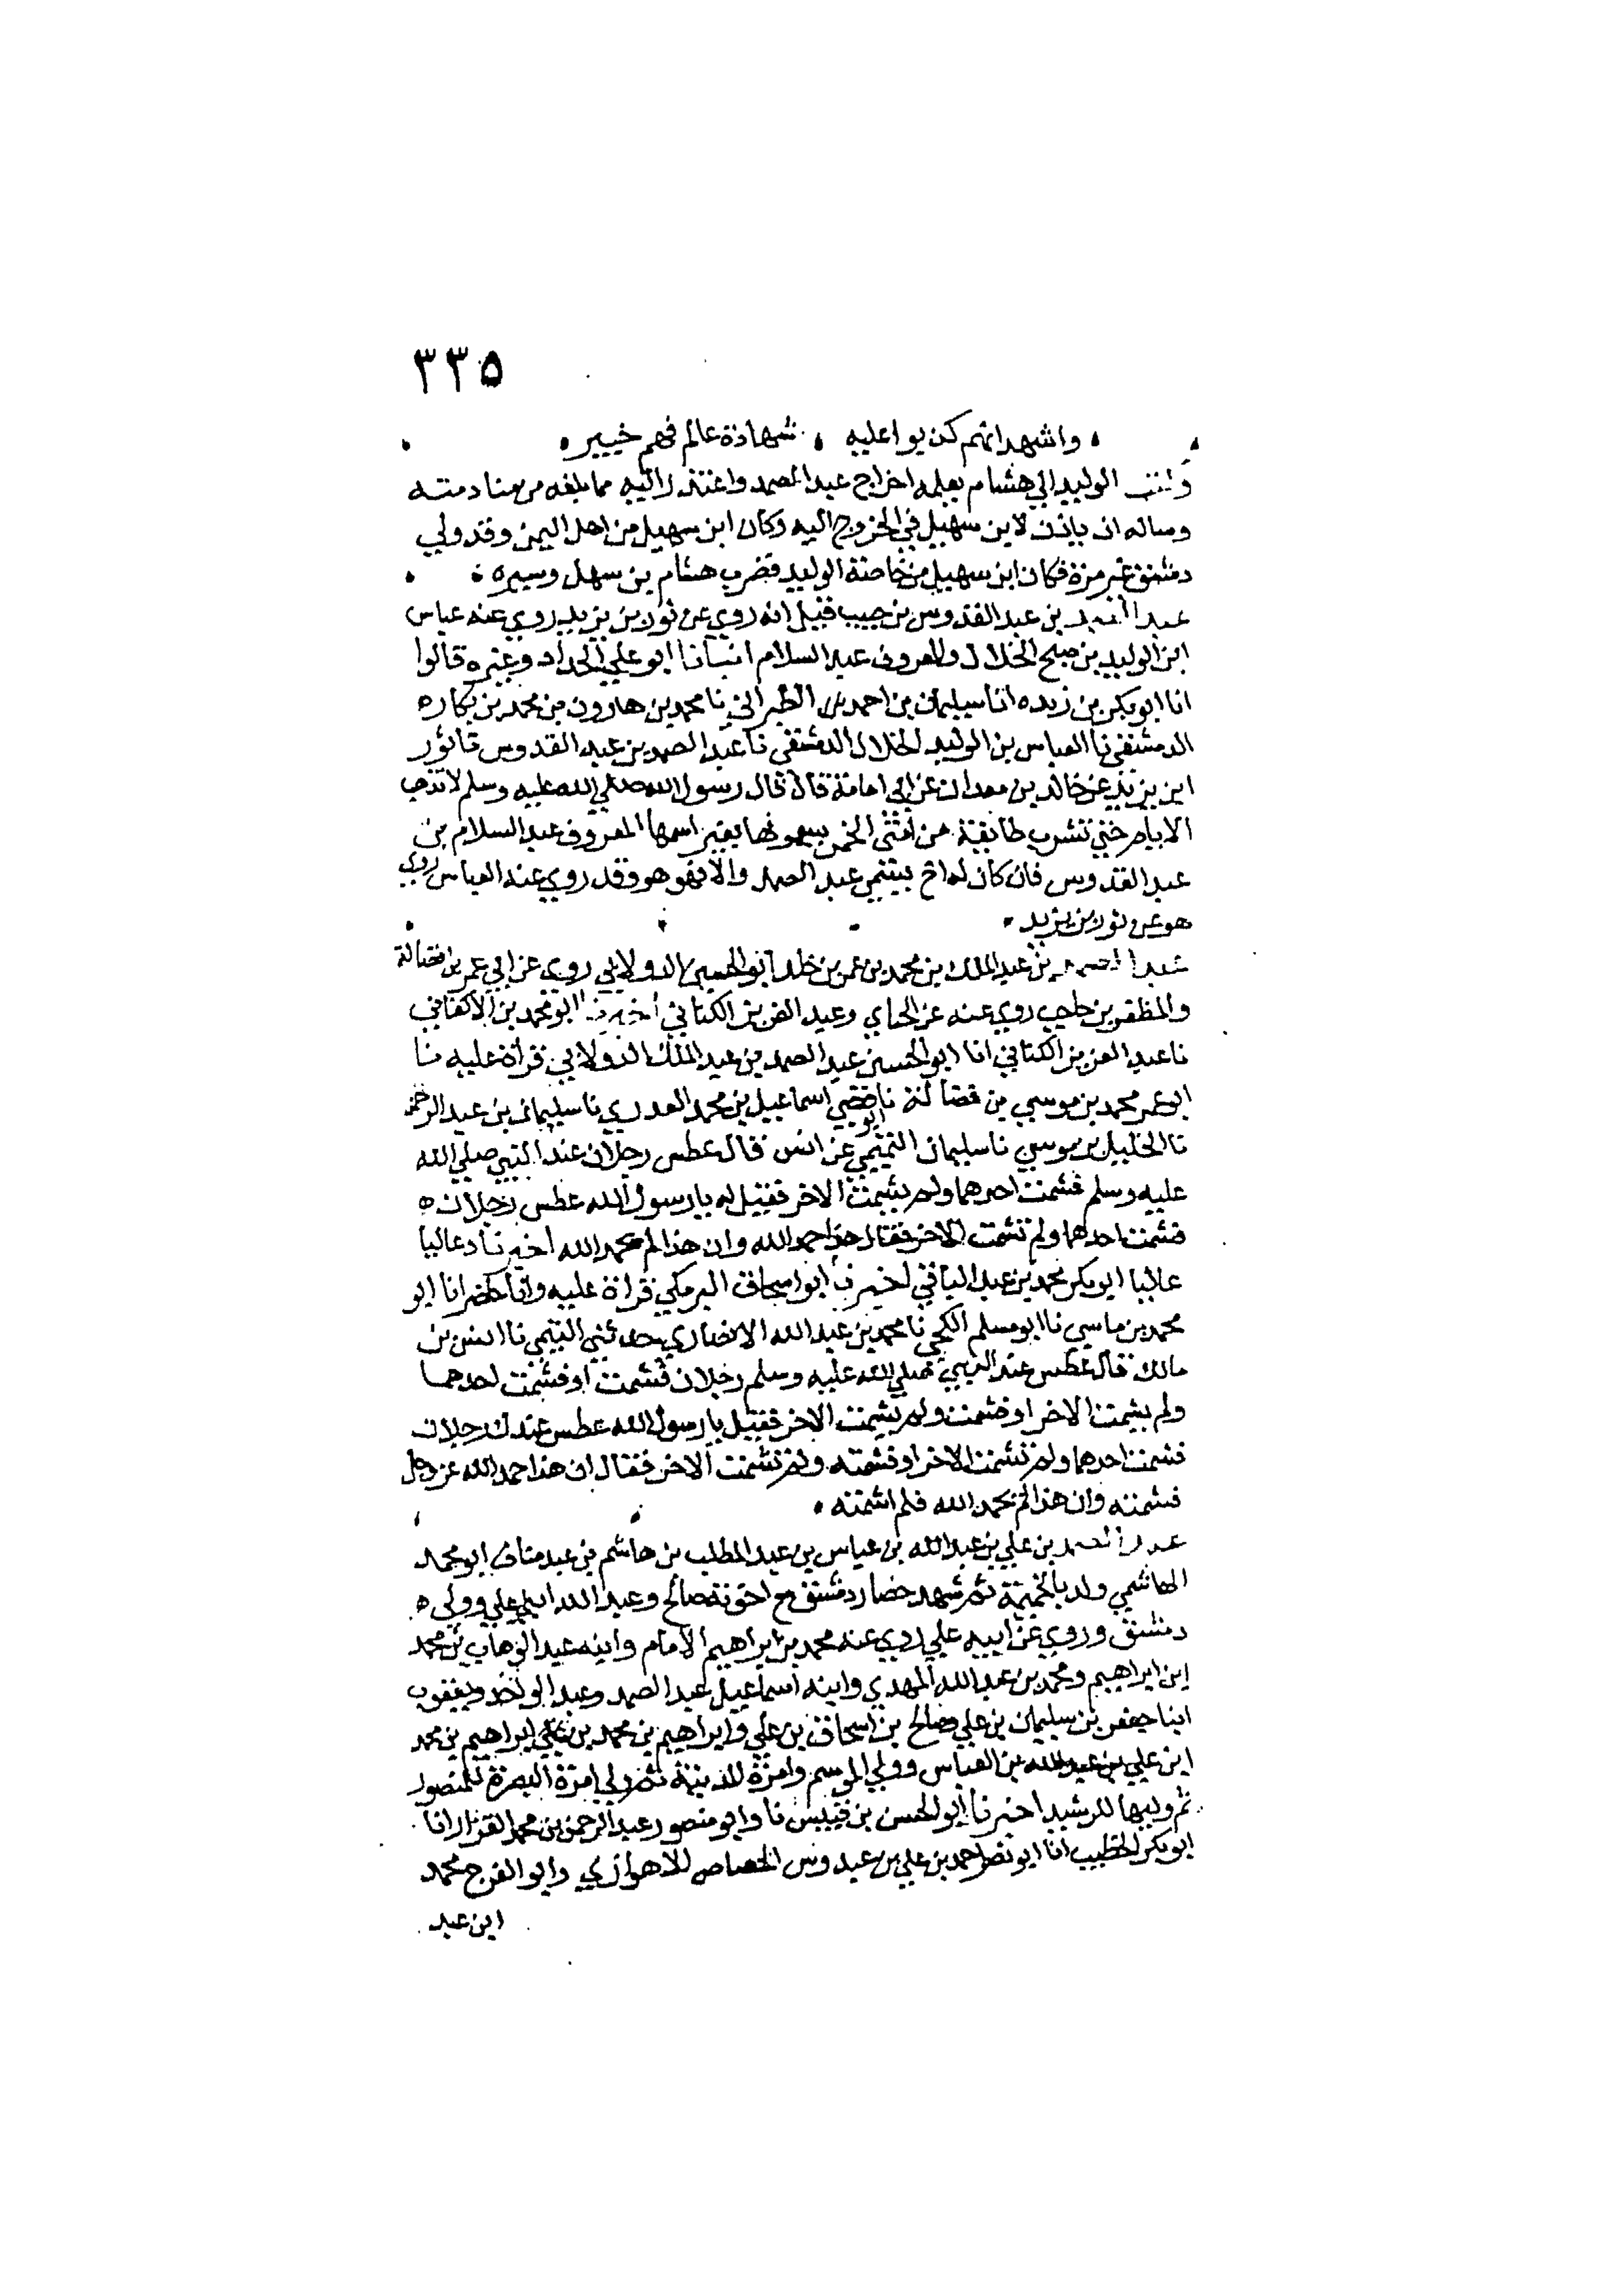 ٣٣٥
واشهد انهم كذبوا عليه شهادة عالم فهم خبير
وكتب الوليد الي هشام يعلمه اخراج عبد الصمد واعتذر اليه مما بلغه من منادمته
وساله ان ياذن لابن سهيل في الخروج اليه وكان ابن سهيل من اهل اليمن وقد ولي
دمشق غير مرة فكان ابن سهيل من خاصة الوليد فضرب هشام بن سهل وسيره
عبد الصمد بن عبد القدوس بن حبيب قيل انه روي عن ثور بن يزيد روي عنه عباس
ابن الوليد بن صبح الخلال والمعروف عبد السلام انبانا ابو علي الحداد وغيره قالوا
انا ابو بكر بن ريذه انا سليمان بن احمد الطبراني نا محمد بن هارون بن محمد بن بكاره
الدمشقي نا العباس بن الوليد الخلال الدمشقي نا عبد الصمد بن عبد القدوس نا ثور
ابن يزيد عن خالد بن معدان عن ابي امامة قال قال رسول الله صلي الله عليه وسلم لا تذهب
الايام حتي تشرب طايفة من امتي الخمر يسمونها بغير اسمها المعروف عبد السلام بن
عبد القدوس فان كان له اخ يسمي عبد الصمد والا فهو هو وقد روي عنه العباس روي
هو عن ثور بن يزيد
عبد الصمد بن عبد الملك بن محمد بن عمر بن خلد ابو الحسين الدولابي روي عن ابي عمر بن فضالة
والمظفر بن حاجب روي عنه الحناي وعبد العزيز الكتاني اخبرنا ابو محمد بن الاكفاني
نا عبد العزيز الكتاني انا ابو الحسين عبد الصمد بن عبد الملك الدولابي قراة عليه نا
ابو عمر محمد بن موسي بن فضالة نا ابو قصي اسماعيل بن محمد العدري نا سليمان بن عبد الرحمن
نا الخليل بن موسي نا سليمان التيمي عن انس قال عطس رجلان عند النبي صلي الله
عليه وسلم فشمت احدهما ولم يشمت الاخر فقيل له يا رسول الله عطس رجلان ه
فشمت احدهما ولم تشمت الاخر فقال هذا حمد الله وان هذا لم يحمد الله اخبرناه عاليا
عاليا ابو بكر محمد بن عبد الباقي اخبرنا ابو اسحاق البرمكي قراة عليه وانا حاضر انا ابو
محمد بن ماسي نا ابو مسلم الكجي نا محمد بن عبد الله الانصاري حدثني التيمي نا انس بن
مالك قال عطس عند النبي صلي الله عليه وسلم رجلان فشمت او فشمت احدهما
ولم يشمت الاخر او فشمته ولم يشمت الاخر فقيل يا رسول الله عطس عندك رجلان
فشمت احدهما ولم تشمت الاخر او فشمته ولم تشمت الاخر فقال ان هذا حمد الله عز وجل
فشمته وان هذا لم يحمد الله فلم اشمته
عبد الصمد بن علي بن عبد الله بن عباس بن عبد المطلب بن هاشم بن عبد مناف ابو محمد
الهاشمي ولد بالحميمة ثم شهد حصار دمشق مع اخوته صالح وعبد الله ابني علي وولي ه
دمشق وروي عن ابيه علي روي عنه محمد بن ابراهيم الامام وابنه عبد الوهاب بن محمد
ابن ابراهيم ومحمد بن عبد الله المهدي وابنه اسماعيل عبد الصمد وعبد الواحد ويعقوب
ابنا جعفر بن سليمان بن علي وصالح بن اسحاق بن علي وابراهيم بن محمد بن علي ابراهيم بن محمد
ابن علي بن عبد الله بن العباس وولي الموسم وامرة المدينة ثم ولي امرة البصرة للمنصور
ثم وليها للرشيد اخبرنا ابو الحسن بن قبيس نا وابو منصور عبد الرحمن بن محمد القزاز انا
ابو بكر الخطيب انا ابو نصر احمد بن علي بن عبدوس الجصاص الاهوازي وابو الفرج محمد
ابن عبد